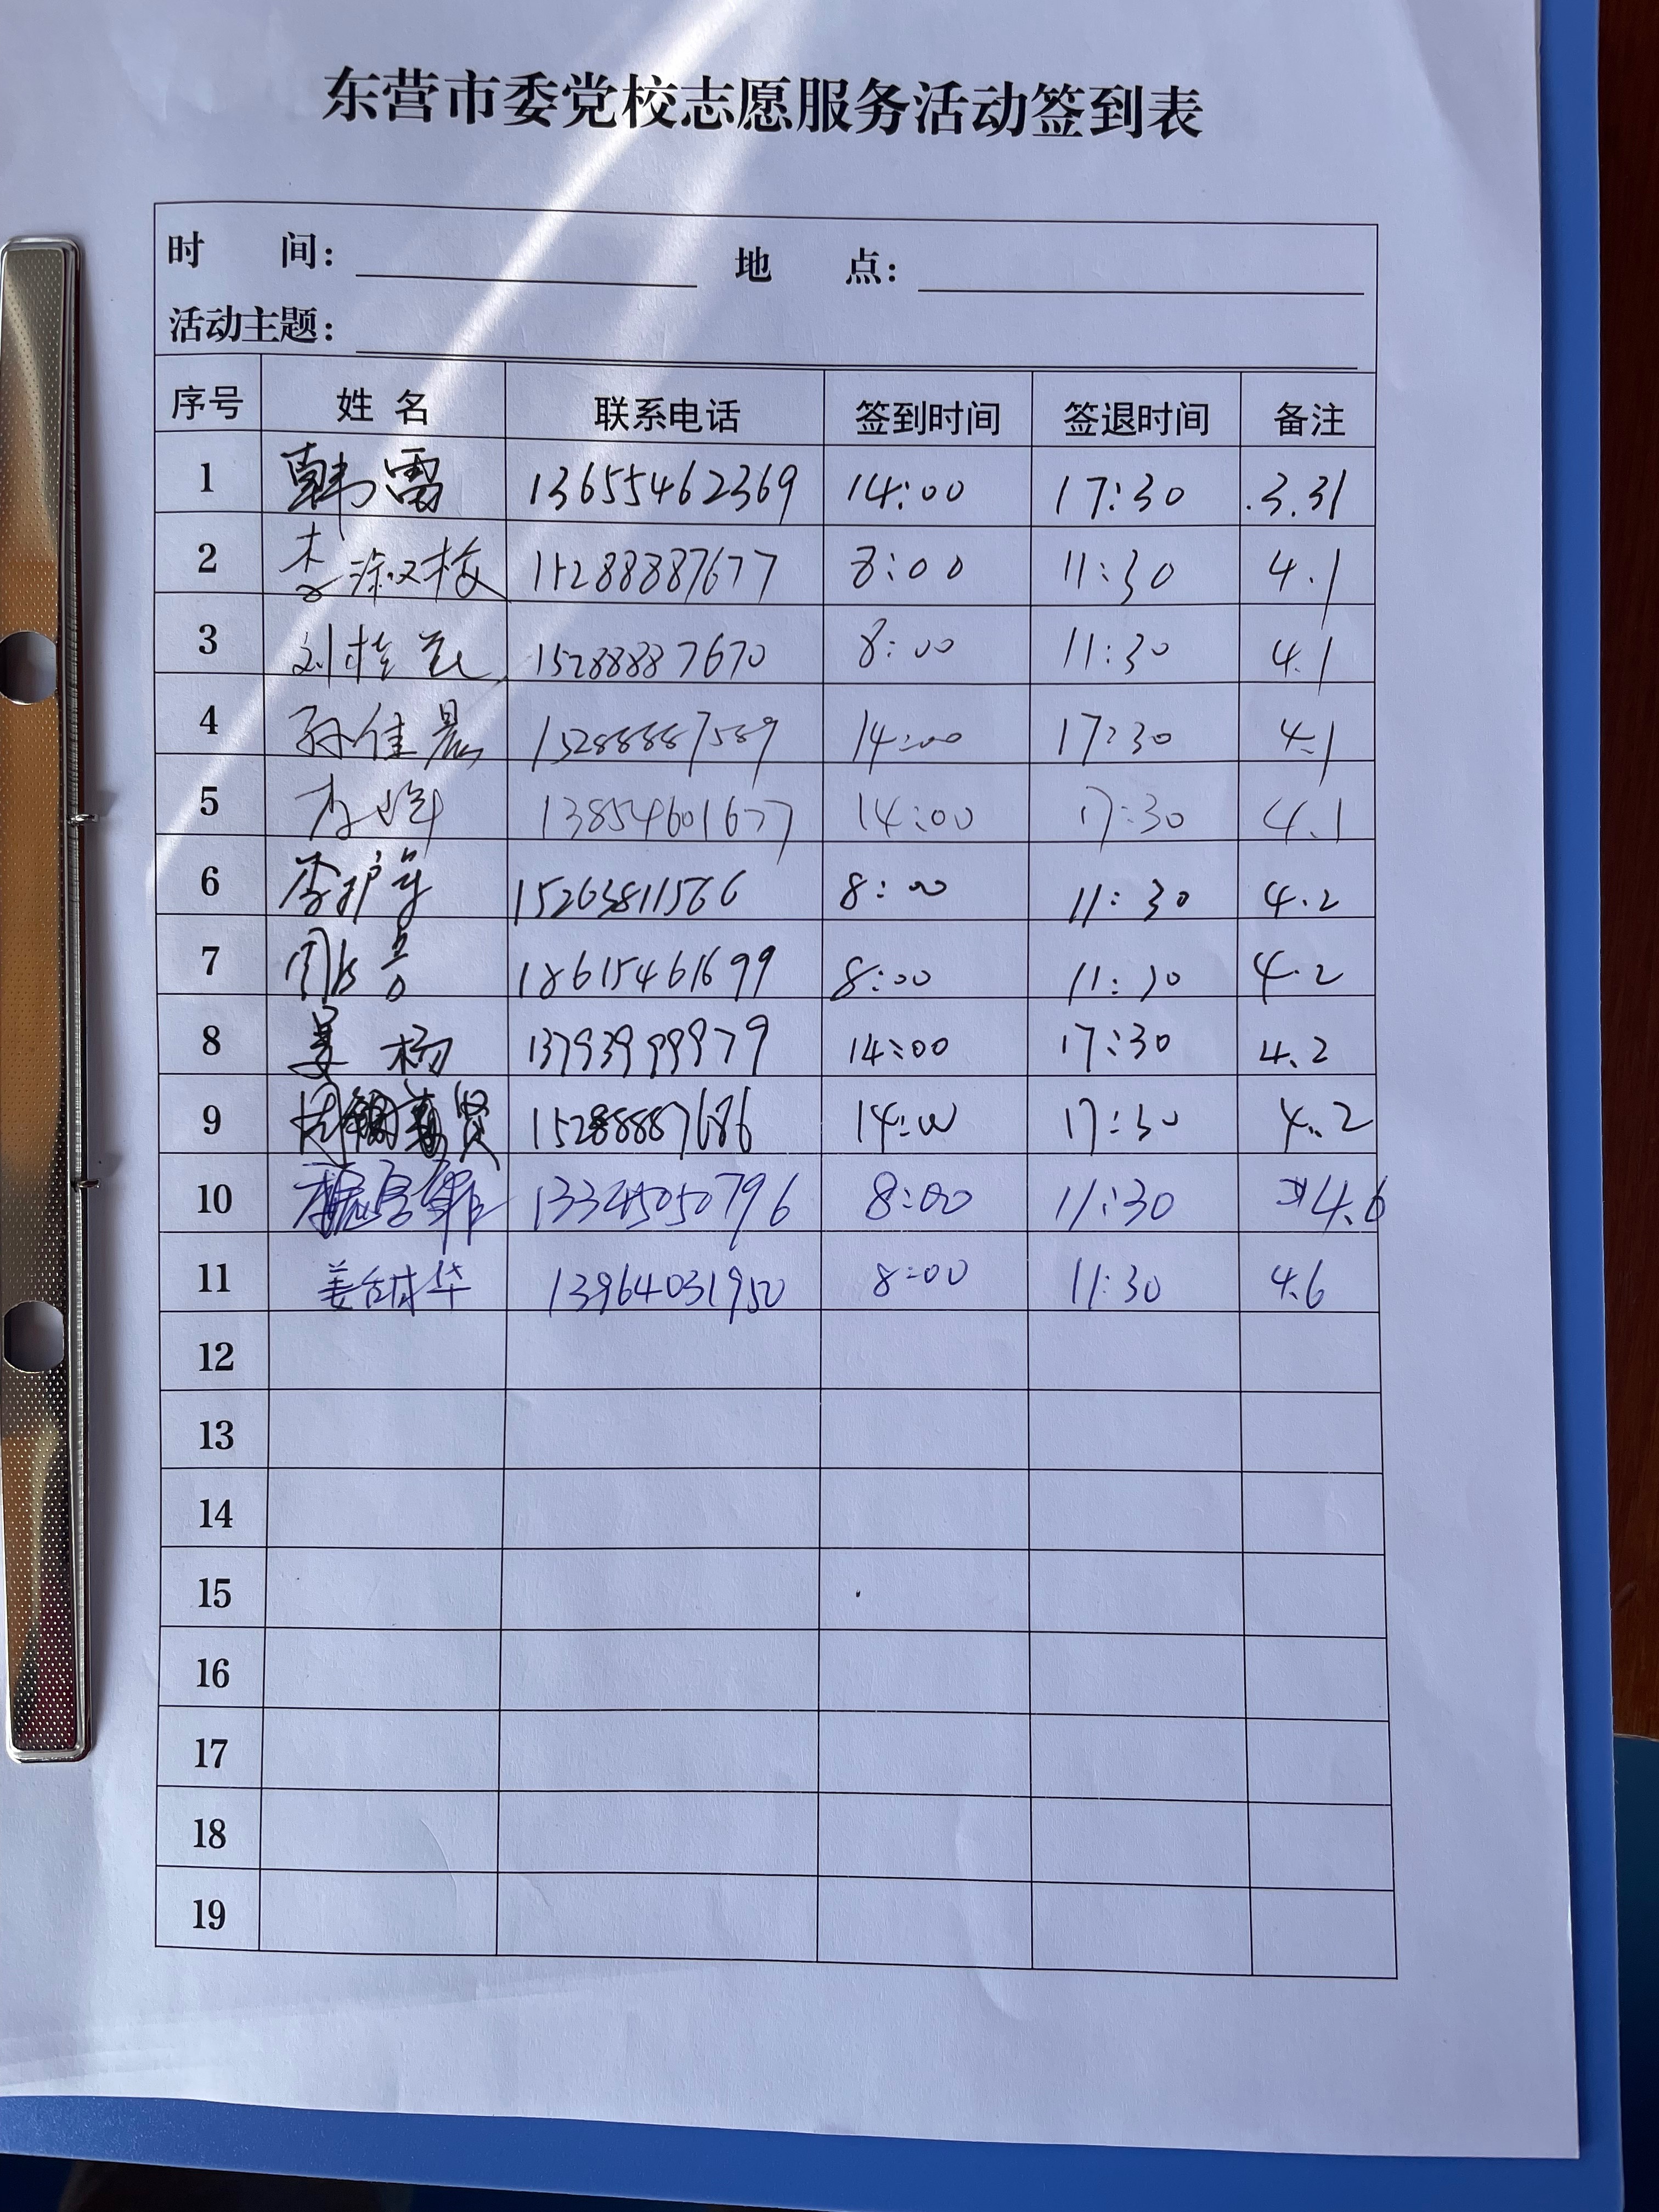 东营市委党校志愿服务活动签到表
时 间： 地 点：
活动主题：
序号 姓 名 联系电话 签到时间 签退时间 备注
1 韩雷 13655462369 14:00 17:30 .3.31
2 李淑梅 15288887677 8:00 11:30 4.1
3 刘桂花 15288887670 8:00 11:30 4.1
4 孙佳晨 15288887589 14:00 17:30 4.1
5 13854601677 14:00 17:30 4.1
6 15263811566 8:00 11:30 4.2
7 18615461699 8:00 11:30 4.2
8 姜杨 13793999979 14:00 17:30 4.2
9 15288887686 14:00 17:30 4.2
10 8:00 11:30 4.6
11 13964031950 8:00 11:30 4.6
12
13
14
15
16
17
18
19